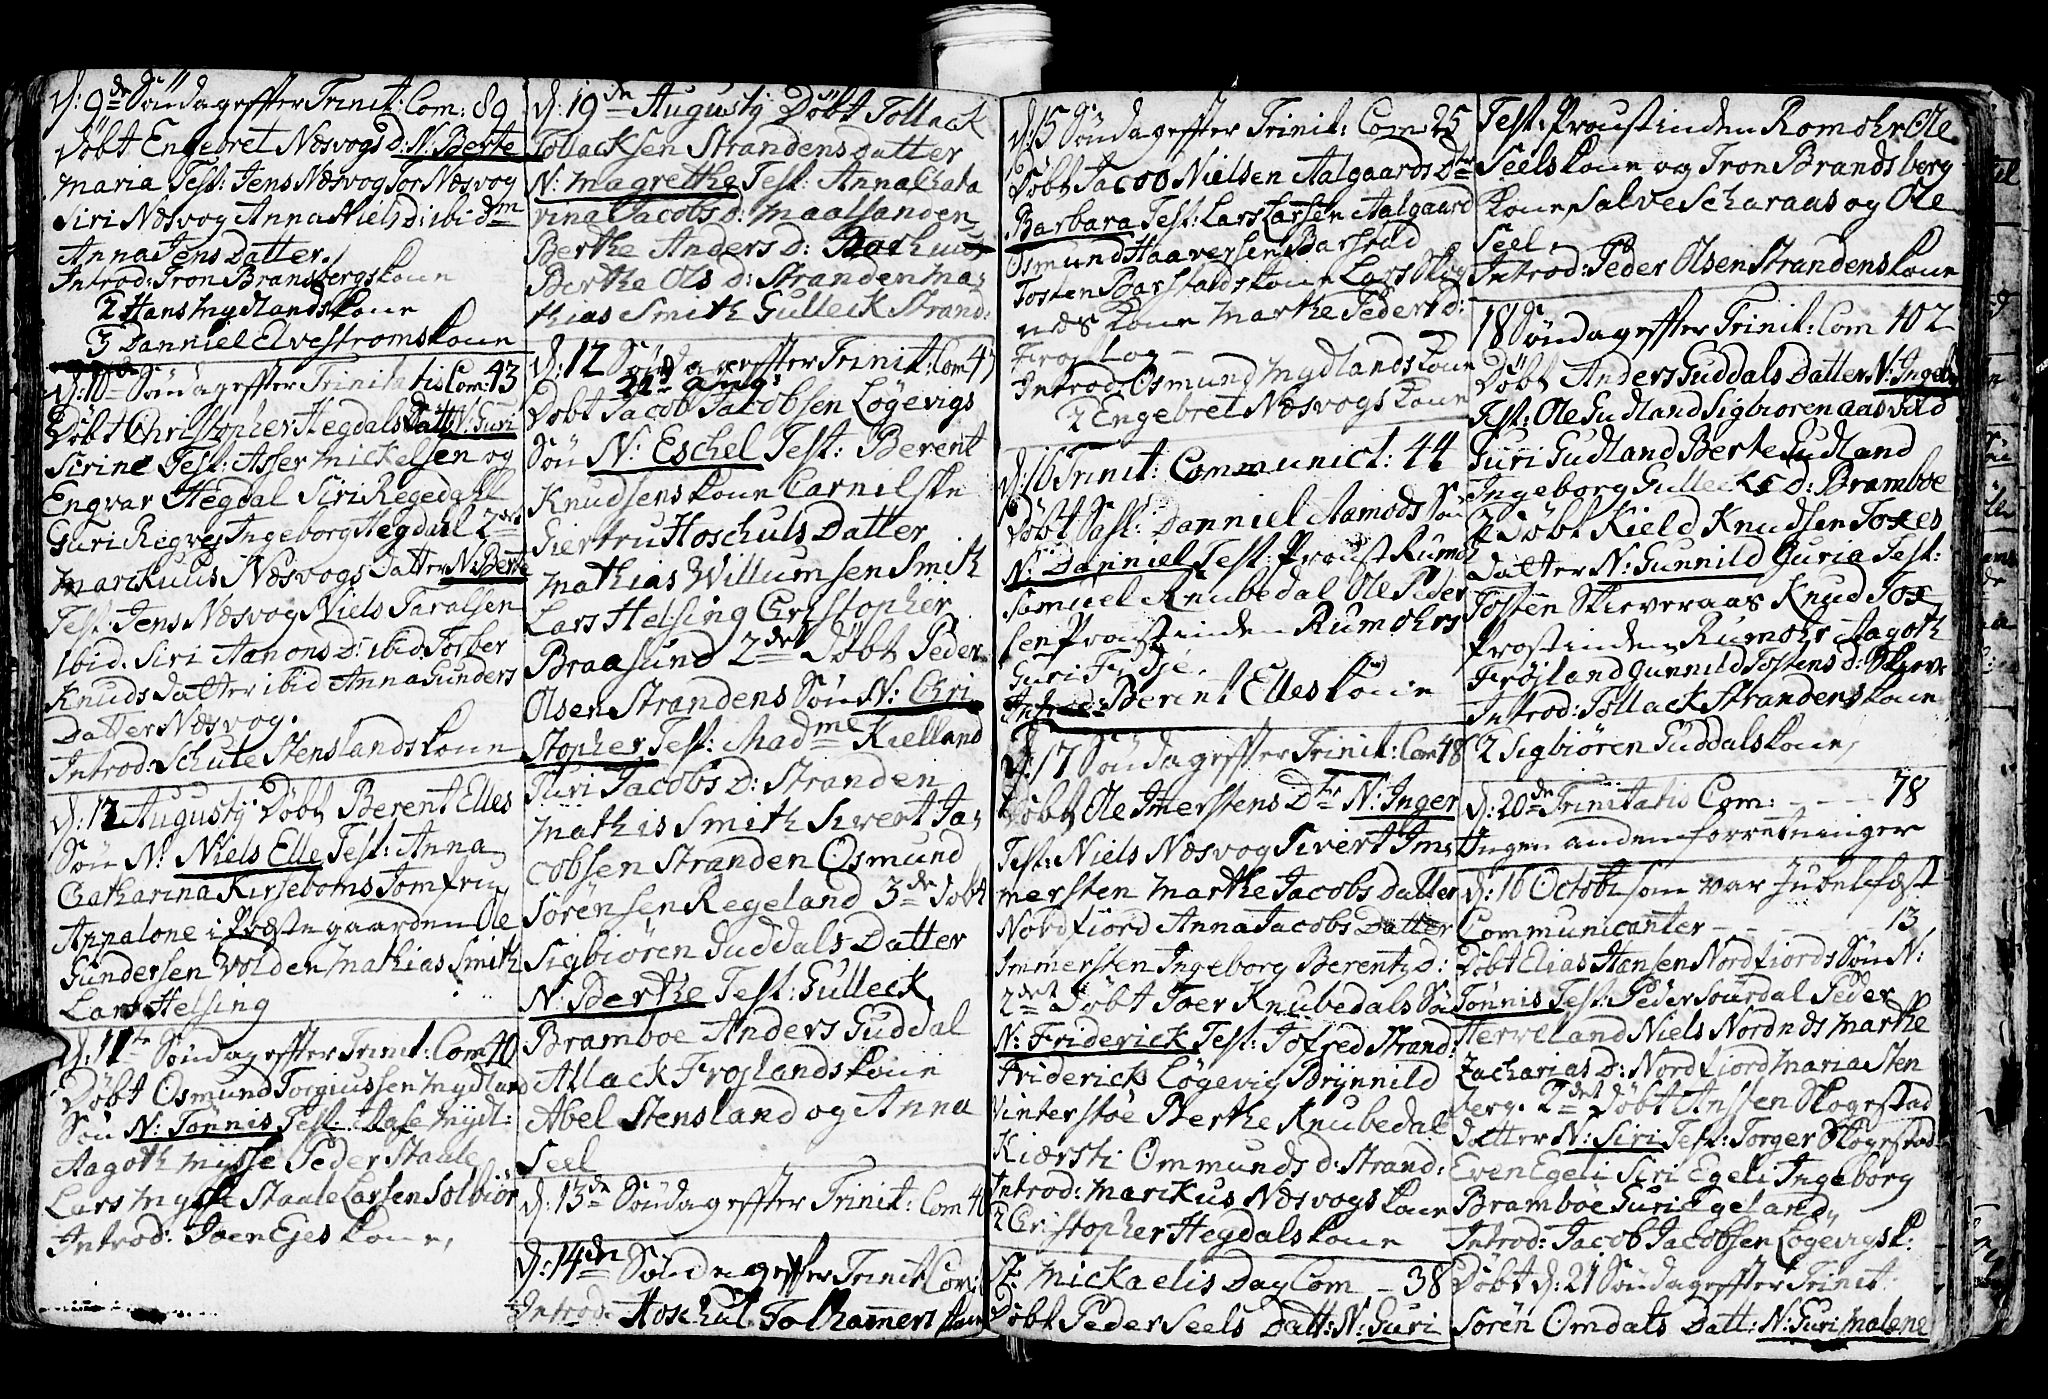 d: 9de Söndag effter Trinit: Com: 89
Döbt Engebret Næsvogs D: N: Berte
Maria Test: Jens Næsvog Tor Næsvog
Siri Næsvog Anna Niels D: ibidm
Anna Jens Datter.
Introd: Tron Brandsbergs kone
2 Hans Mydlands kone
3 Danniel Elvestroms kone
d: 10de Söndag effter Trinitatis Com: 43
Döbt Christopher Hegdals Datt: N: Guri
Sirine Test: Asser Mickelsen og
Engvar Hegdal Siri Regedahl
Guri Regvej Ingeborg Hegdal 2det
Marckuus Næsvogs Datter N: Berte
Test: Jens Næsvog Niels Taralsen
ibid. Siri Aanons D: ibid. Tosber
Knuds datter ibid Anna Gunders
Datter Næsvog.
Introd: Schule Stenslands kone
d: 12 Augustij Döbt Berent Elles
Sön N: Niels Elle Test: Anna
Catharina Kirseboms Jomfru
Appalone i Præstegaarden Ole
Gundersen Volden Mathias Smith
Lars Helsing
d: 11te Söndag effter Trinit: Com 40
Döbt Osmund Torgiussen Mydland
Sön N: Tönnis Test: Aase Mydl:
Aagoth Mysse Peder Staale
Lars Mysse Staale Larsen Solbiör
Introd: Joen Ejes kone,
d: 19de Augustij Döbt Tollack
Tollacksen Strandens Datter
N: Magrethe Test: Anna Chata
rina Jacobs D: Maalsanden
Berthe Anders D:
Berthe Ols D: Stranden Ma,
thias Smith Gulleck Strand:
d: 12 Söndag effter Trinit: Com 47
22d Aug:
Döbt Jacob Jacobsen Lögevigs
Sön N: Eschel Test: Berent
Knudsens kone Carnelske
Giertru Hoschuls Datter
Mathias Willumsen Smith
Lars Helsing Christopher
Braasund 2det Döbt Peder
Olsen Strandens Sön N: Chri
stopher Test: Madme Kielland
Turi Jacobs D: Stranden
Mathis Smith Sivert Ja,
cobsen Stranden Osmund
Sörensen Regeland 3de Döbt
Sigbiören Guddals Datter
N: Berthe Test: Gulleck
Bramboe Anders Guddal
Atlack Frojlands kone
Abel Stensland og Anna
Seel
d: 13de Söndag effter Trinit: Com 40
d: 14de Söndag effter Trinit Com:
Introd: Hoschul Tolhamers kone
d: 15 Söndag effter Trinit: Com 25
Döbt Jacob Nielsen Aalgaards Dtr
Barbara Test: Lars Larsen Aalgaard
Osmund Haaversen Barstad
Tosten Barstads kone Lars Skig
næs kone Marthe Peders d:
Frostog
Introd: Osmund Mydlands kone
2 Engebret Næsvogs kone
d: 16 Trinit: Communict: 44
Döbt Sal: Danniel Aamods Sön
N: Danniel Test: Proust Rumoh
Samuel Knubedal Ole Peder
sen Proustinden Rumohrs
Guri Fidje.
Introd: Berent Elles kone
d: 17 Söndag effter Trinit: Com 48
Döbt Ole Imerstens Dtr N: Inger
Test: Niels Næsvog Sivert Im,
mersten Marthe Jacobs datter
Nordfiord Anna Jacobs Datter
Immersten Ingeborg Berents D:
2det Döbt Toer Knubedals Sön
N: Friderick Test: Jofred Strand:
Friderich Lögevig Brynnild
Vinterstöe Berthe Knubedal
Kiersti Ommunds d: Strand:
Introd: Marckus Næsvogs kone
2 Christopher Hegdals kone
St: Mickaelis Day Com - 38
Döbt Peder Seels Datt: N: Guri
Test: Proustinden Romohr Ole
Seels kone og Tron Brandsberg
kone Salve Scharaas og Ole
Seel.
Introd: Peder Olsen Strandens kone
18 Söndag effter Trinit: Com 102
Döbt Anders Guddals Datter N: Ingeb
Test: Ole Gudland Sigbiören Aasvild
Guri Gudland Berte Gudland
Ingeborg Gullecks D: Bramboe
2 Döbt Kield Knudsen Toxes
Datter N: Gunnild Guria Test:
Tosten Skieveraas Knud Tox
Prostinden Rumohr Aagoth
Fröjland Gunnild Tostens D: Skjevr
Introd: Tollack Strandens kone
2 Sigbiören Guddals kone,
d: 20de Trinitatis Com: - - - 78
Ingen anden forretninger
d: 16 Octobr: som var Jubelfæst
Communicanter - - - 13
Döbt Elias Hansen Nordfiords Sön N:
Tönnis Test: Peder Sourdal Peder
Herveland Niels Nordnæs Marthe
Zacharias D: Nordfiord Maria Sten
berg. 2det Döbt Ansten Skogestad
datter N: Siri Test: Torger Skogestad
Even Egeli Siri Egeli Ingeborg
Bramboe Guri Egeland,
Introd: Jacob Jacobsen Lögevigs k:
Döbt d: 21 Söndag effter Trinit:
Sören Omdals Datt: N: Guri Malene